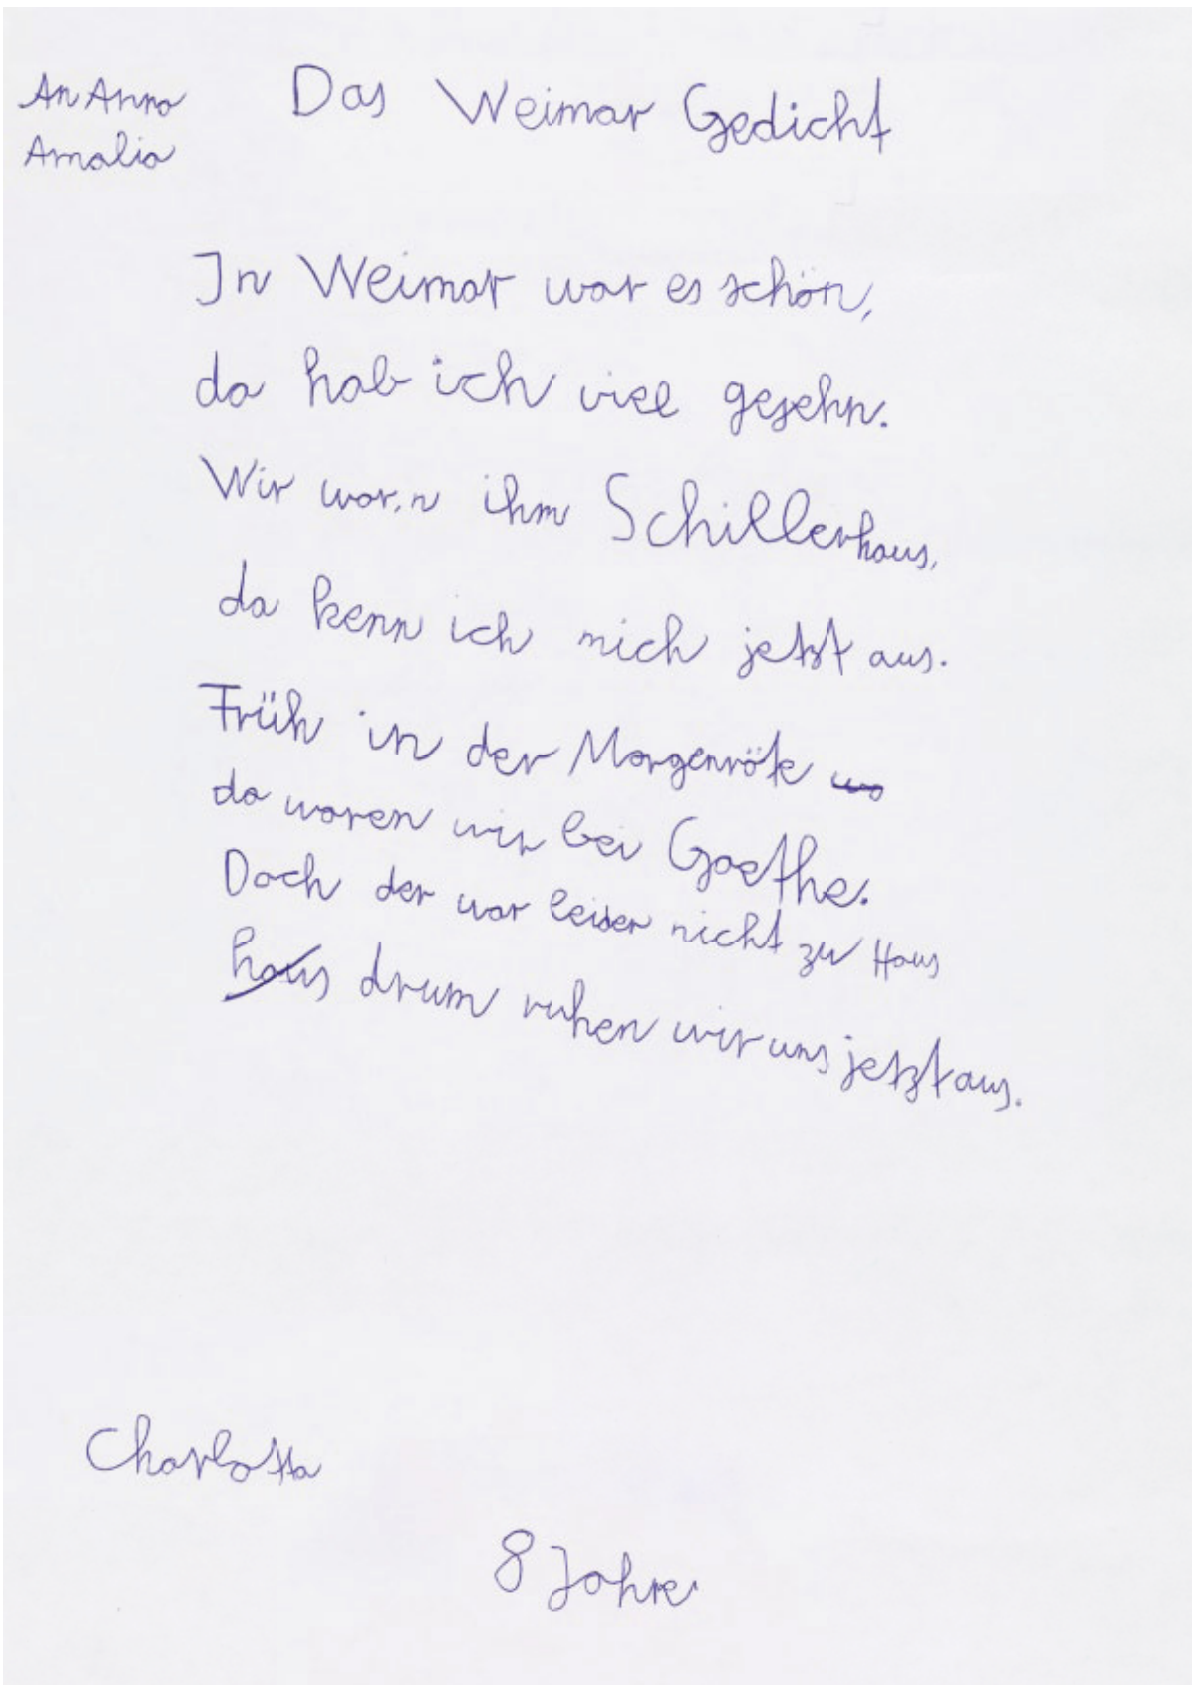 An Anna
Amalia
Das Weimar Gedicht
In Weimar war es schön,
da hab ich viel gesehn.
Wir war,n ihm Schillerhaus,
da kenn ich mich jetzt aus.
Früh in der Morgenröte wo
da waren wir bei Goethe.
Doch der war leider nicht zu Haus
haus drum ruhen wir uns jetzt aus.
Charlotta
8 Jahre